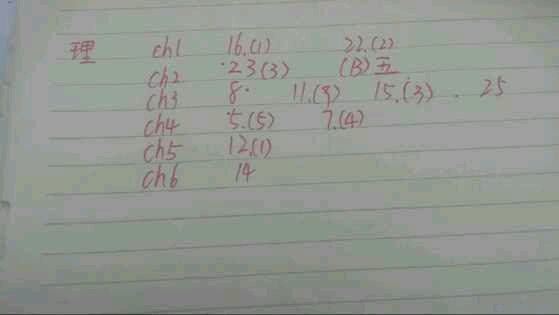 理 ch1 16.(1) 22.(2)
ch2 23(3) (B)五
ch3 8. 11.(8) 15.(3). 25
ch4 5.(5) 7.(4)
ch5 12.(1)
ch6 14